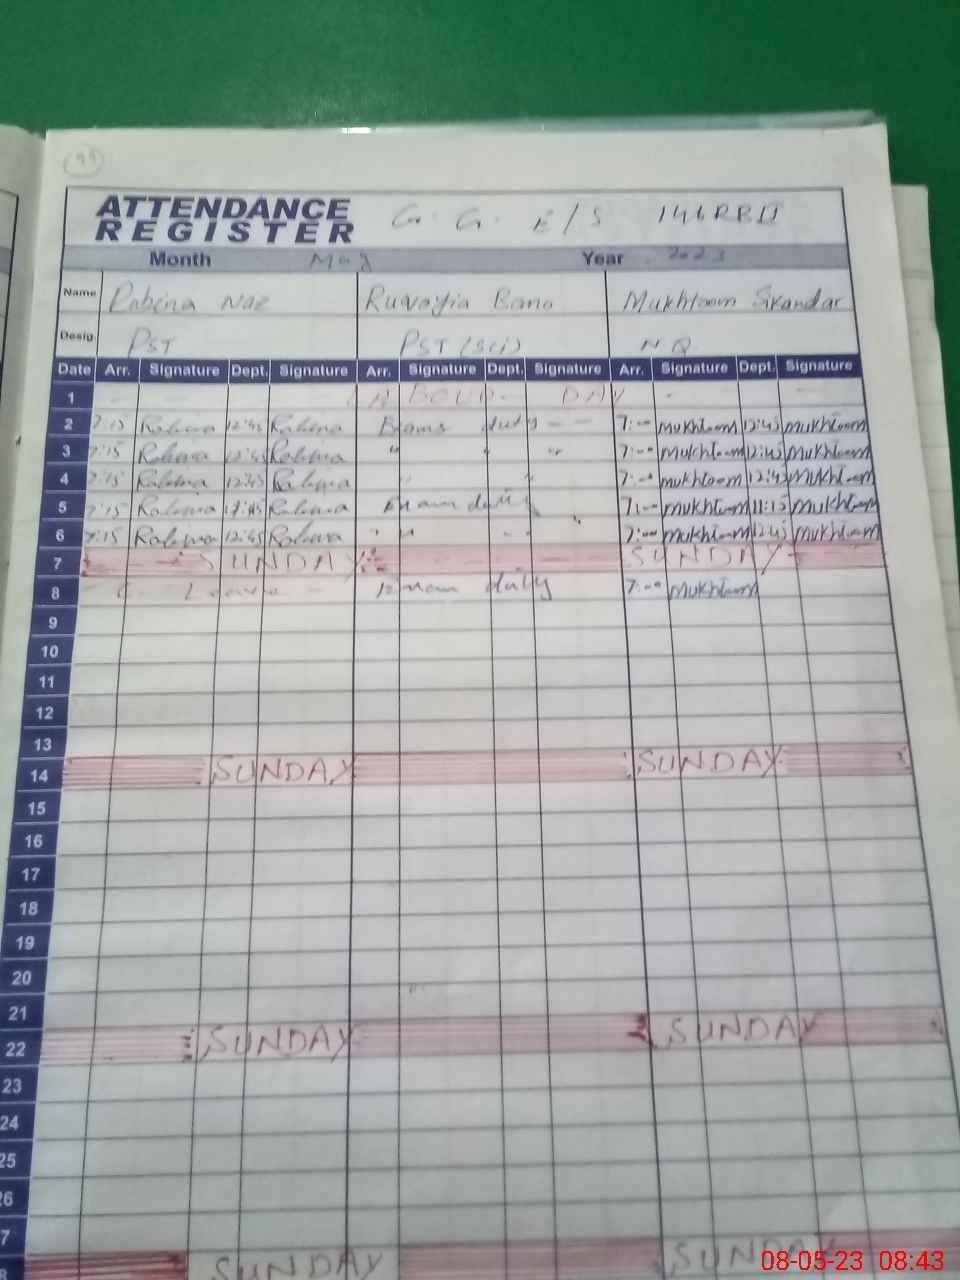 99
ATTENDANCE
REGISTER
G. G. E/S 146RBII
Month May Year 2023
Name Robina Naz Ruvayia Bano Mukhtoom Sikandar
Desig. PST PST (Sci) N Q
Date Arr. Signature Dept. Signature Arr. Signature Dept. Signature Arr. Signature Dept. Signature
1 LABOUR DAY
2 7:15 12:45 Exams duty 7:00 Mukhtoom 12:45 Mukhtoom
3 7:15 12:45 " " " 7:00 Mukhtoom 12:45 Mukhtoom
4 7:15 12:45 " " 7:00 Mukhtoom 12:45 Mukhtoom
5 7:15 12:45 Exam duty 7:00 Mukhtoom 11:15 Mukhtoom
6 7:15 12:45 " " 7:00 Mukhtoom 12:45 Mukhtoom
7 SUNDAY SUNDAY
8 C. Leave Exam duty 7:00 Mukhtoom
9
10
11
12
13
14 SUNDAY SUNDAY
15
16
17
18
19
20
21
22 SUNDAY SUNDAY
23
24
25
26
7
SUNDAY SUNDAY
08-05-23 08:43